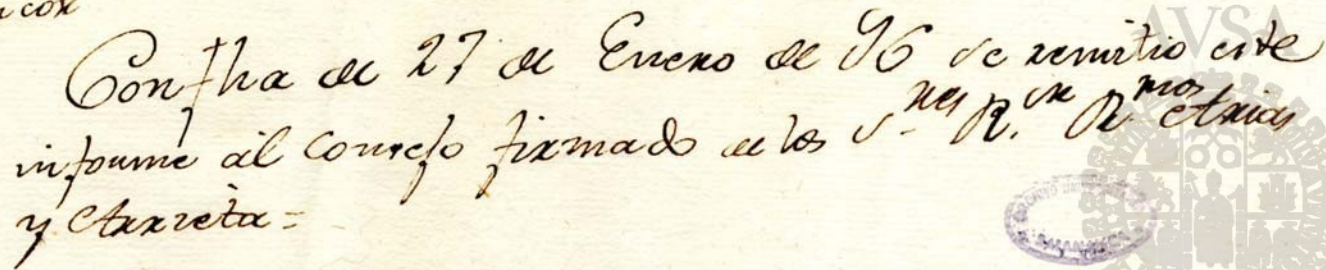 Con fha de 27 de Enero de 96 se remitio este
informe al Consejo firmado de los S.res R.or R.mos Arias
y Arrieta =
AVSA